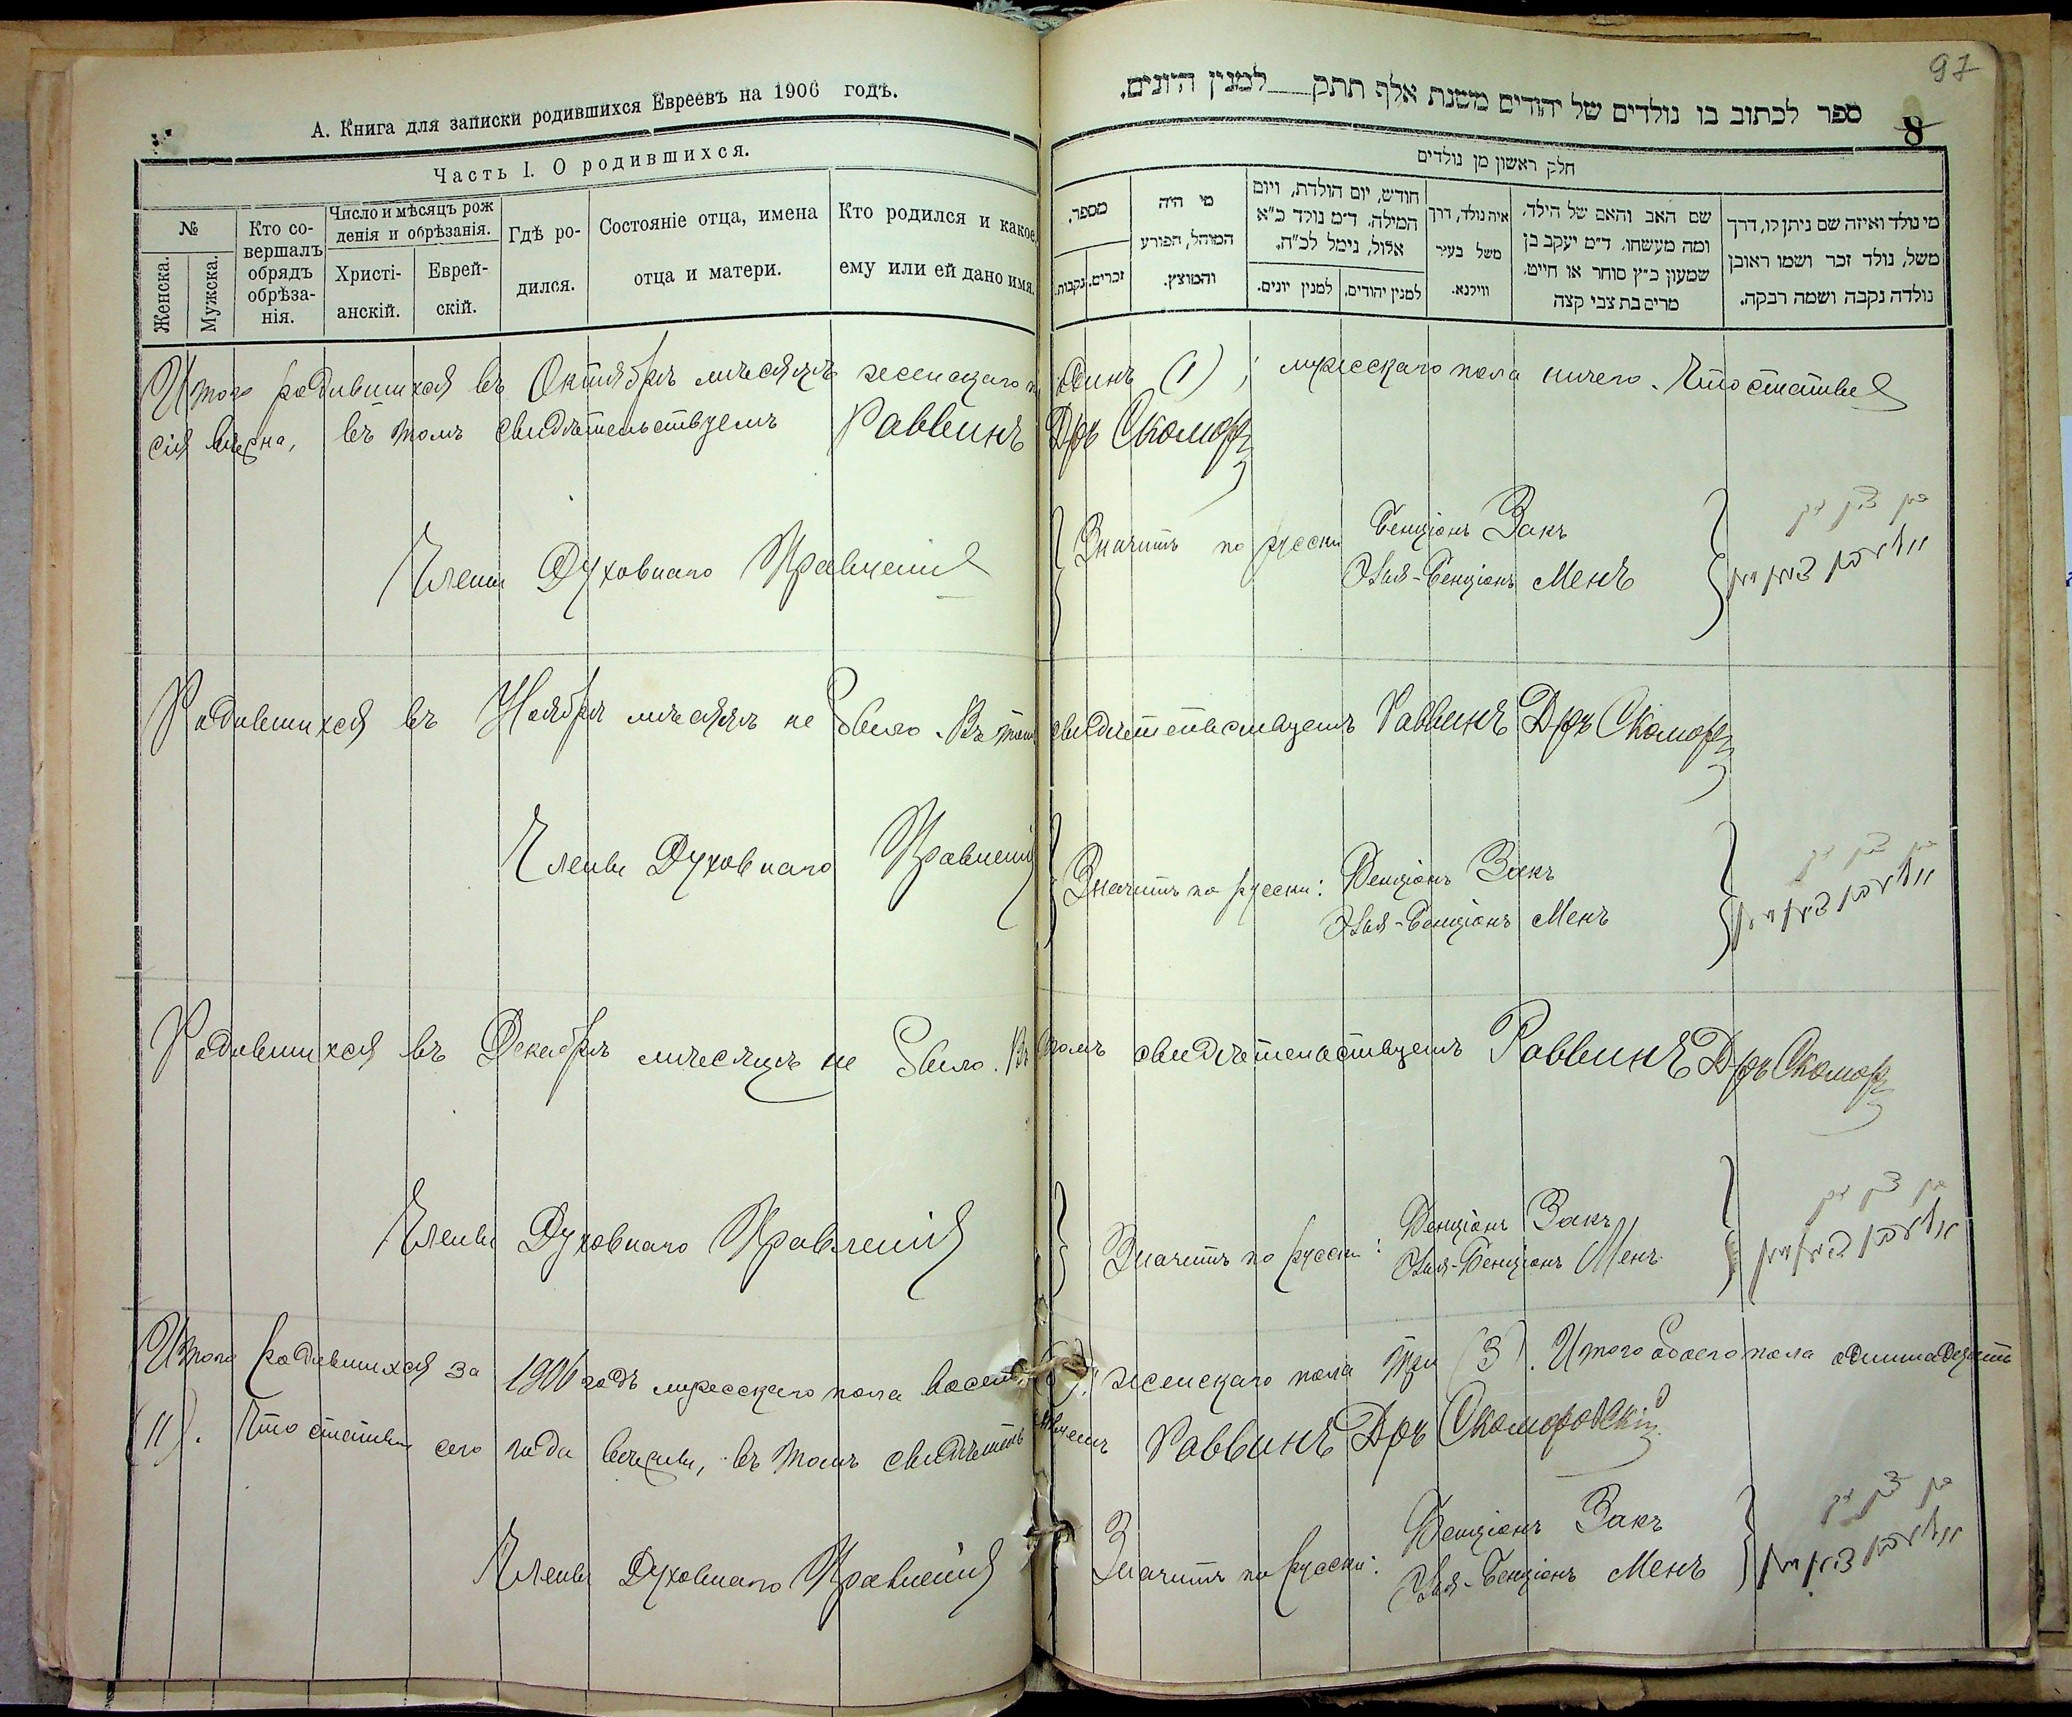 97
А. Книга для записки родившихся Евреевъ на 1906 годъ.
ספר לכתוב בו נולדים של יהודים משנת אלף תתק למנין היונים.
8
Часть I. О родившихся.
חלק ראשון מן נולדים
№
Женска.
Мужска.
Кто со-
вершалъ
обрядъ
обрѣза-
нія.
Число и мѣсяцъ рож
денія и обрѣзанія.
Христі-
анскій.
Еврей-
скій.
Гдѣ ро-
дился.
Состояніе отца, имена
отца и матери.
Кто родился и какое
ему или ей дано имя.
מספר.
נקבות.
זכרים.
מי היה
המוהל, הפורע
והמוצץ.
חודש, יום הולדת, ויום
המילה. ד״מ נולד כ״א
אלול, נימל לכ״ח.
למנין יונים.
למנין יהודים.
איה נולד, דרך
משל בעיר
ווילנא.
שם האב והאם של הילד,
ומה מעשהו. ד״מ יעקב בן
שמעון כ״ץ סוחר או חייט.
מרים בת צבי קצה
מי נולד ואיזה שם ניתן לו, דרך
משל, נולד זכר ושמו ראובן
נולדה נקבה ושמה רבקה.
Итого родившихся въ Октябрѣ мѣсяцѣ женскаго п одинъ (1); мужескаго пола ничего. Что статья
сія вѣрна, въ томъ свидѣтельствуемъ Раввинъ Дръ Скомор
Члены Духовнаго Правленія
Значитъ по русски Бенціонъ Закъ
Элья-Бенціонъ Менъ
בן ציון זק
Родившихся въ Ноябрѣ мѣсяцѣ не было. Въ томъ свидѣтельствуемъ Раввинъ Дръ Скомор
Члены Духовнаго Правленія
Значитъ по русски: Бенціонъ Закъ
Элья-Бенціонъ Менъ
בן ציון זק
Родившихся въ Декабрѣ мѣсяцѣ не было. Въ томъ свидѣтельствуемъ Раввинъ Дръ Скомор
Члены Духовнаго Правленія
Значитъ по русски: Бенціонъ Закъ
Элья-Бенціонъ Менъ
בן ציון זק
Итого родившихся за 1906 годъ мужескаго пола восемь (8); женскаго пола три (3). Итого обоего пола одиннадцать
(11). Что статьи сего года вѣрны, въ томъ свидѣтельствуемъ Раввинъ Дръ Скоморовскій
Члены Духовнаго Правленія
Значитъ по русски: Бенціонъ Закъ
Элья-Бенціонъ Менъ
בן ציון זק